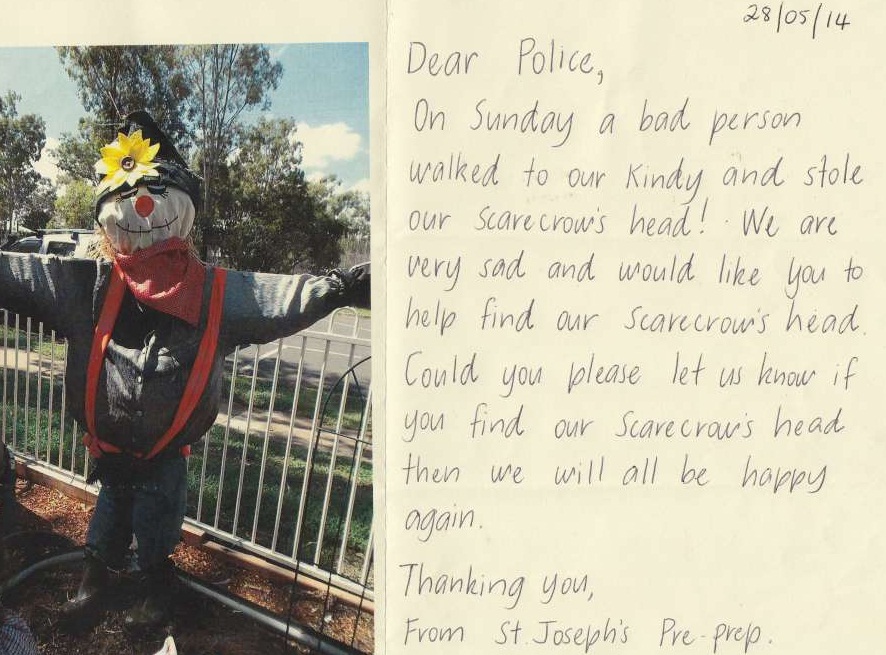 28/05/14
Dear Police,
On Sunday a bad person
walked to our Kindy and stole
our scarecrow's head! We are
very sad and would like you to
help find our scarecrow's head.
Could you please let us know if
you find our scarecrow's head
then we will all be happy
again.
Thanking you,
From St.Joseph's Pre-prep.